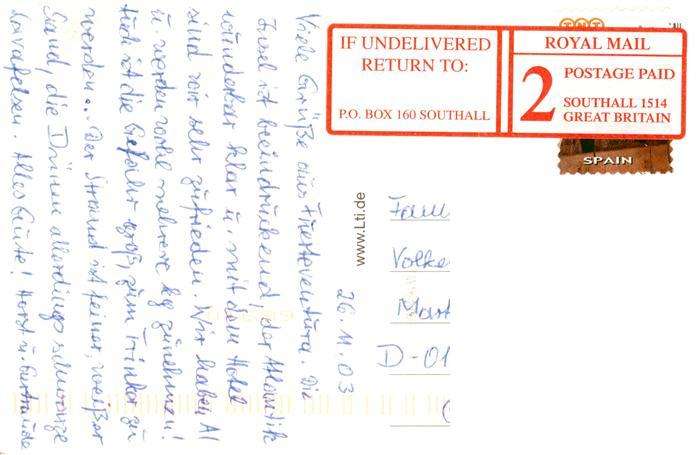 Viele Grüße aus Fuerteventura. Die
Insel ist beeindruckend, der Atlantik
wunderbar klar u. mit dem Hotel
sind wir sehr zufrieden. Wir haben AI
u. werden wohl mehrere kg zunehmen!
Auch ist die Gefahr groß, zum Trinker zu
werden... Der Strand ist feiner, weißer
Sand, die Dünen allerdings schwarze
Lavafelsen. Alles Gute! Horst u. Gertraude
26.11.03
www.Lti.de
IF UNDELIVERED
RETURN TO:
P.O. BOX 160 SOUTHALL
ROYAL MAIL
2
POSTAGE PAID
SOUTHALL 1514
GREAT BRITAIN
TNT
SPAIN
Fam
Volke
Mart
D-01